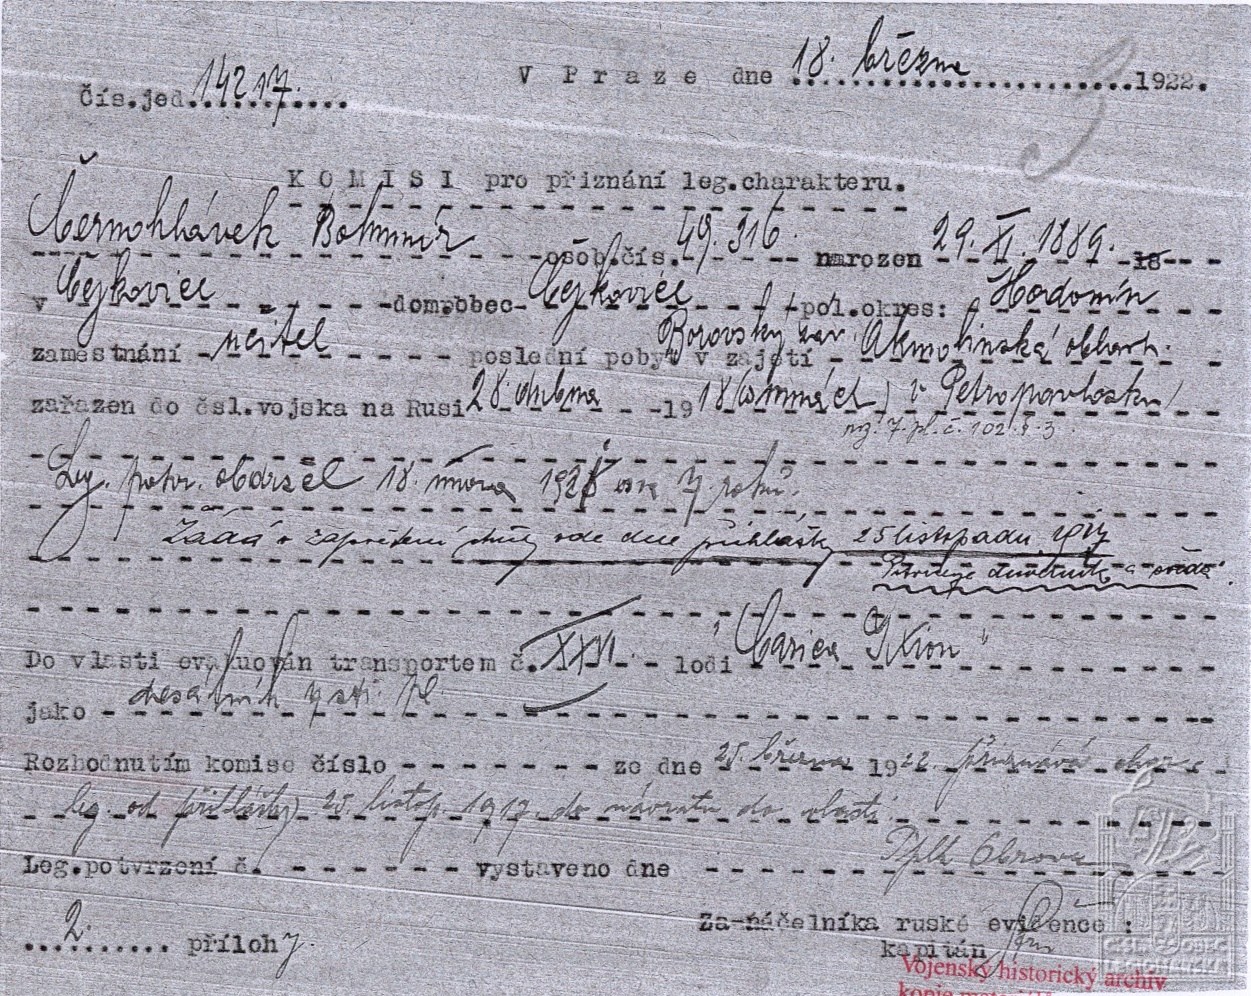 V Praze dne 18. března 1922.
Čís.jed. 14217.
KOMISI pro přiznání leg.charakteru.
Černohlávek Bohumír osob.čís. 49.316. narozen 29. XI. 1889. 18
v Čejkovice dom.obec Čejkovice pol.okres: Hodonín
zaměstnání učitel poslední pobyt v zajetí Borovsky zav. Akmolinská oblast.
zařazen do čsl.vojska na Rusi 28. dubna 1918 v Petropavlovsku
7. pl. č. 102 § 3.
Leg. potvr. obdržel 18. února 192 7. roků.
Žádá o započtení služ. ode dne přihlášky 25 listopadu 1917
a svědci.
Do vlasti evakuován transportem č. XXVI. lodi "Carica
jako desátník 7 stř. pl.
Rozhodnutím komise číslo ze dne 25. března 1922. přiznává char.
leg. od přihlášky 25 listop. 1917. do návratu do vlasti.
Leg.potvrzení č. vystaveno dne
Pplk
Za náčelníka ruské evidence :
2. přílohy.
kapitán
ČSL. OBEC
LEGIONÁŘSKÁ
Vojenský historický archiv